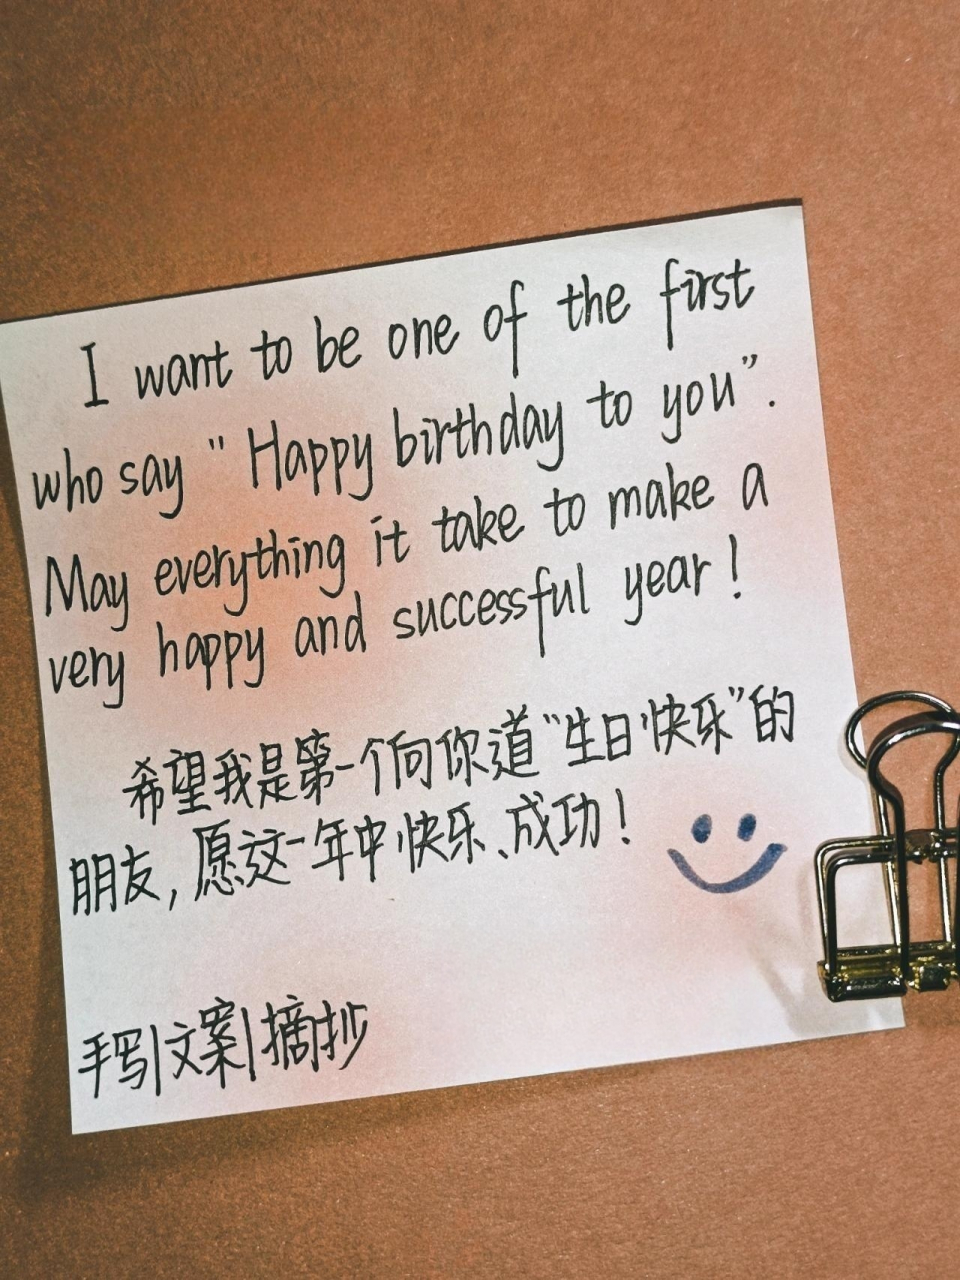 I want to be one of the first
who say "Happy birthday to you".
May everything it take to make a
very happy and successful year!
希望我是第一个向你道"生日快乐"的
朋友,愿这一年中快乐、成功!
手写|文案|摘抄